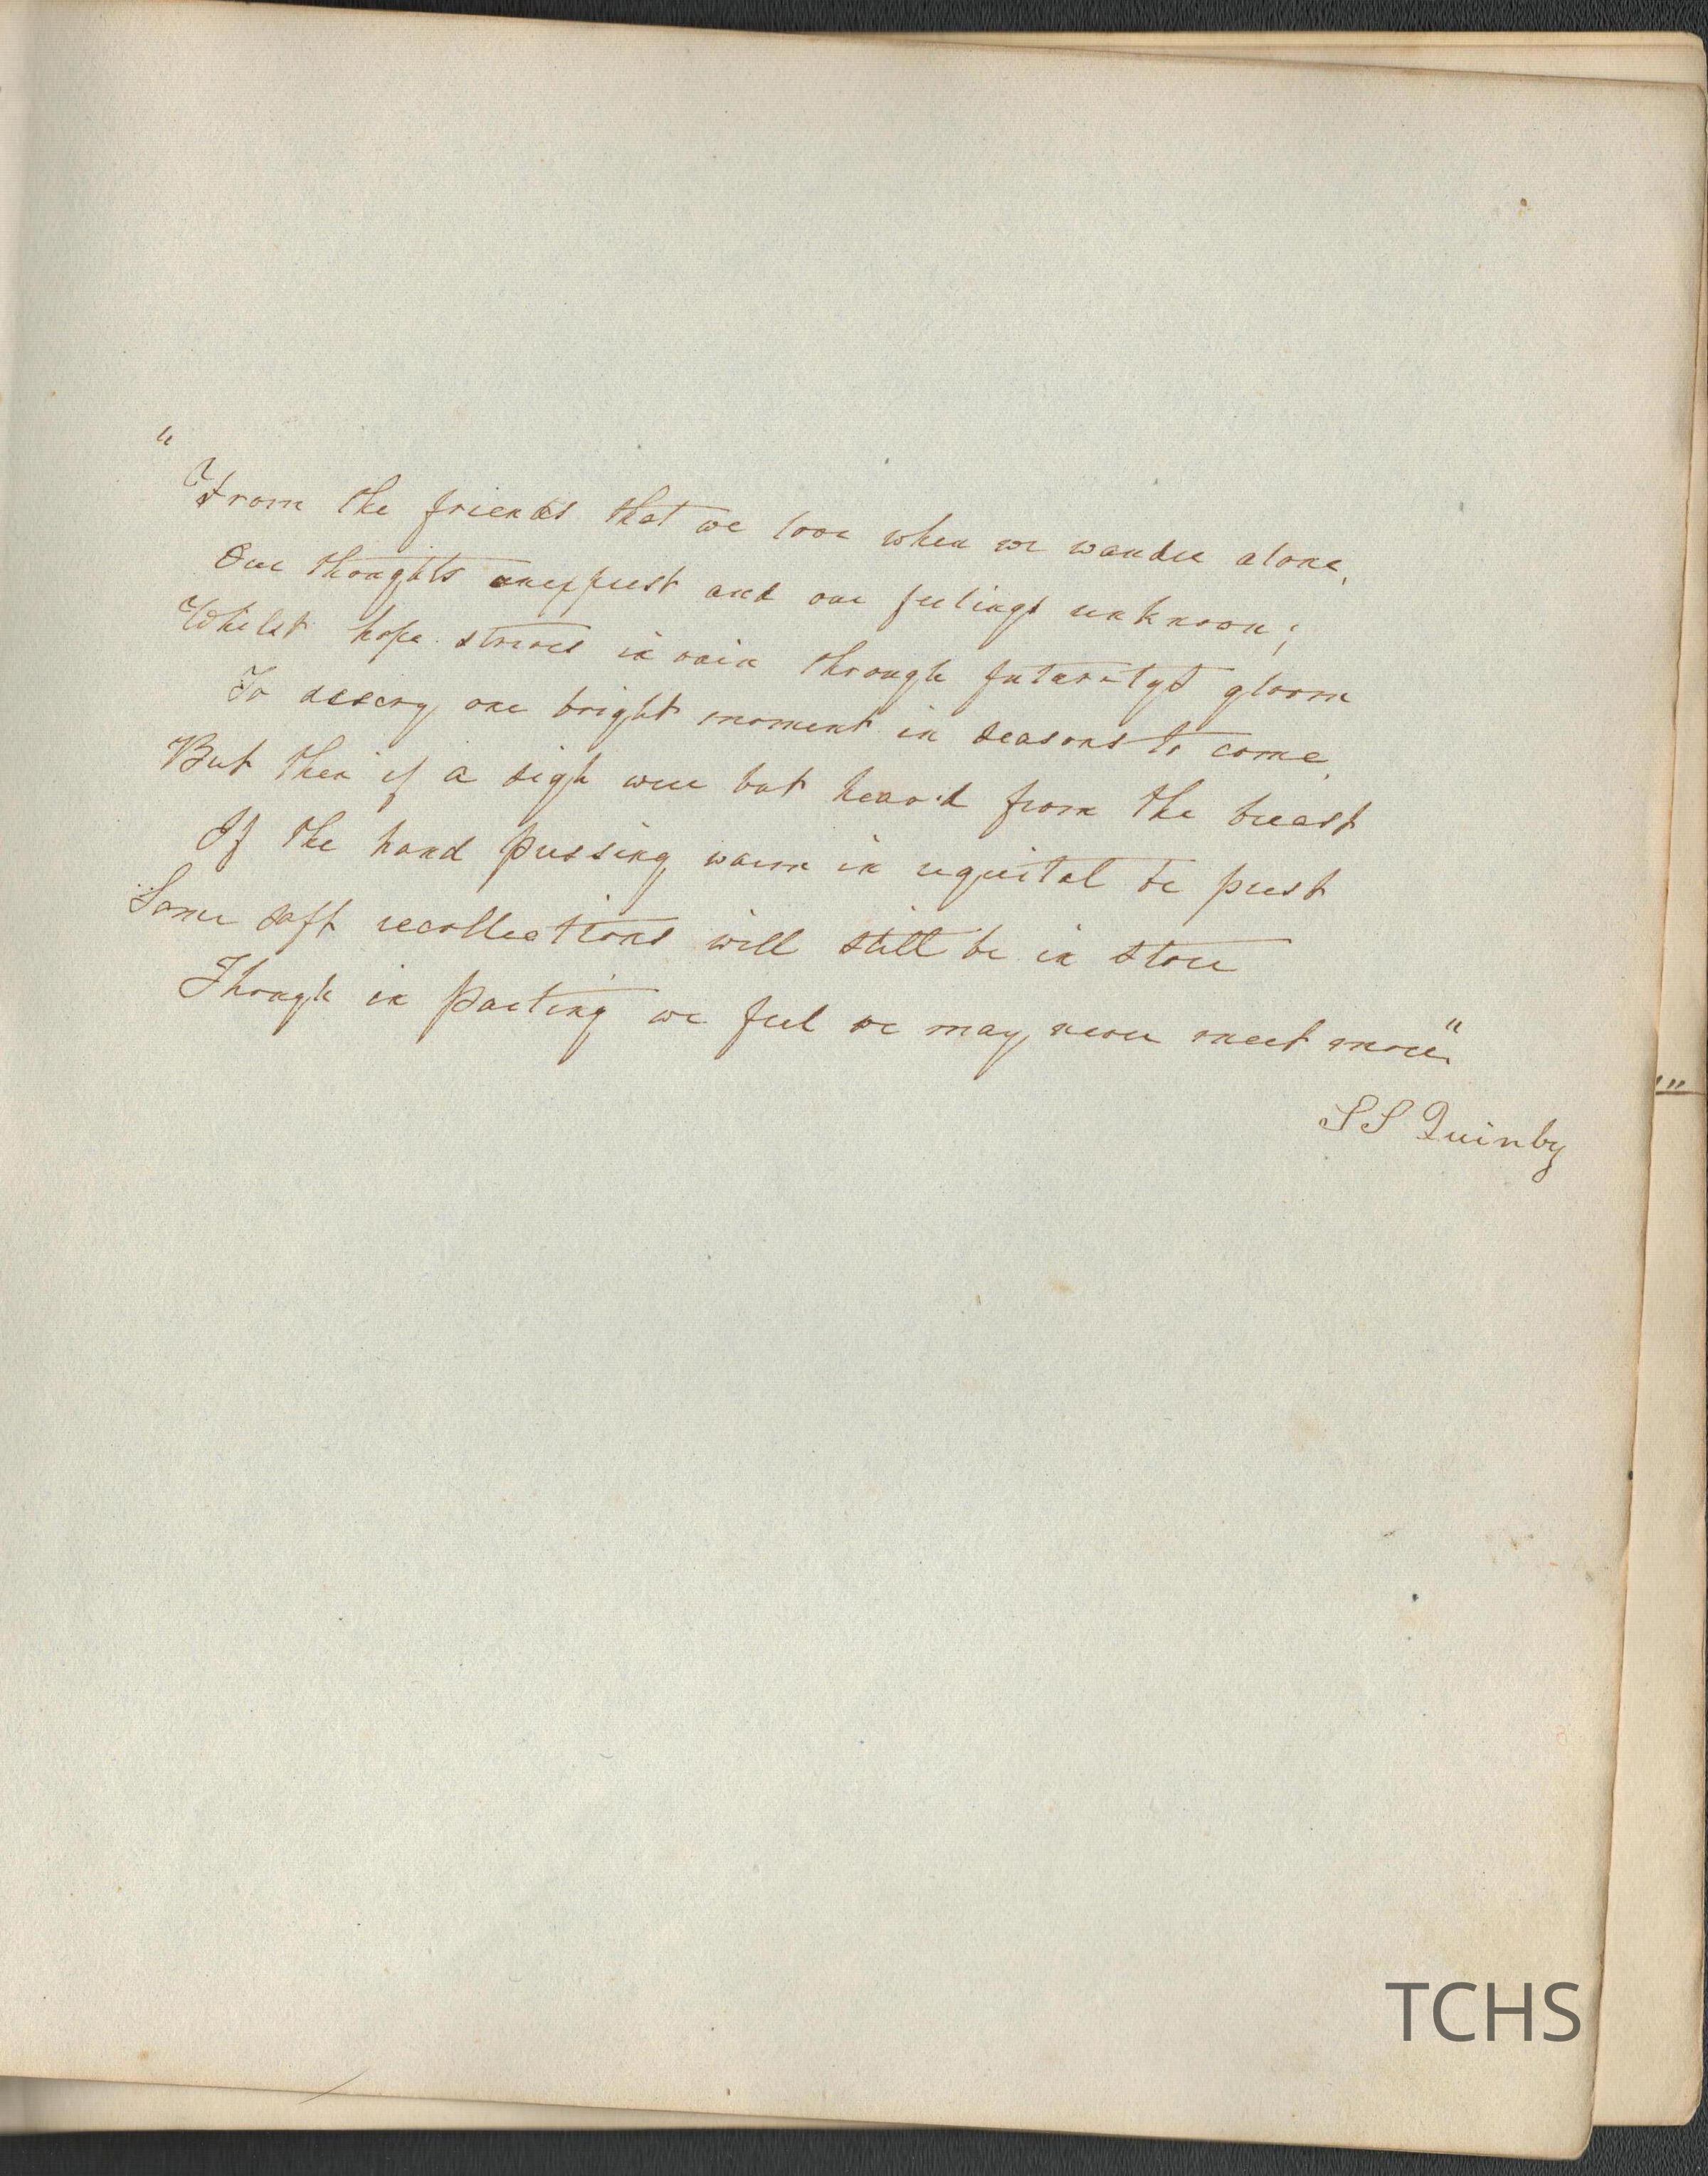 "From the friends that we love when we wander alone,
Our thoughts unexprest and our feelings unknown;
Whilst hope strives in vain through futurity's gloom
To descry one bright moment in seasons to come.
But then if a sigh were but heard from the breast
If the hand pressing warm in requital be prest
Some soft recollections will still be in store
Though in parting we feel we may never meet more."
S S Quinby
TCHS